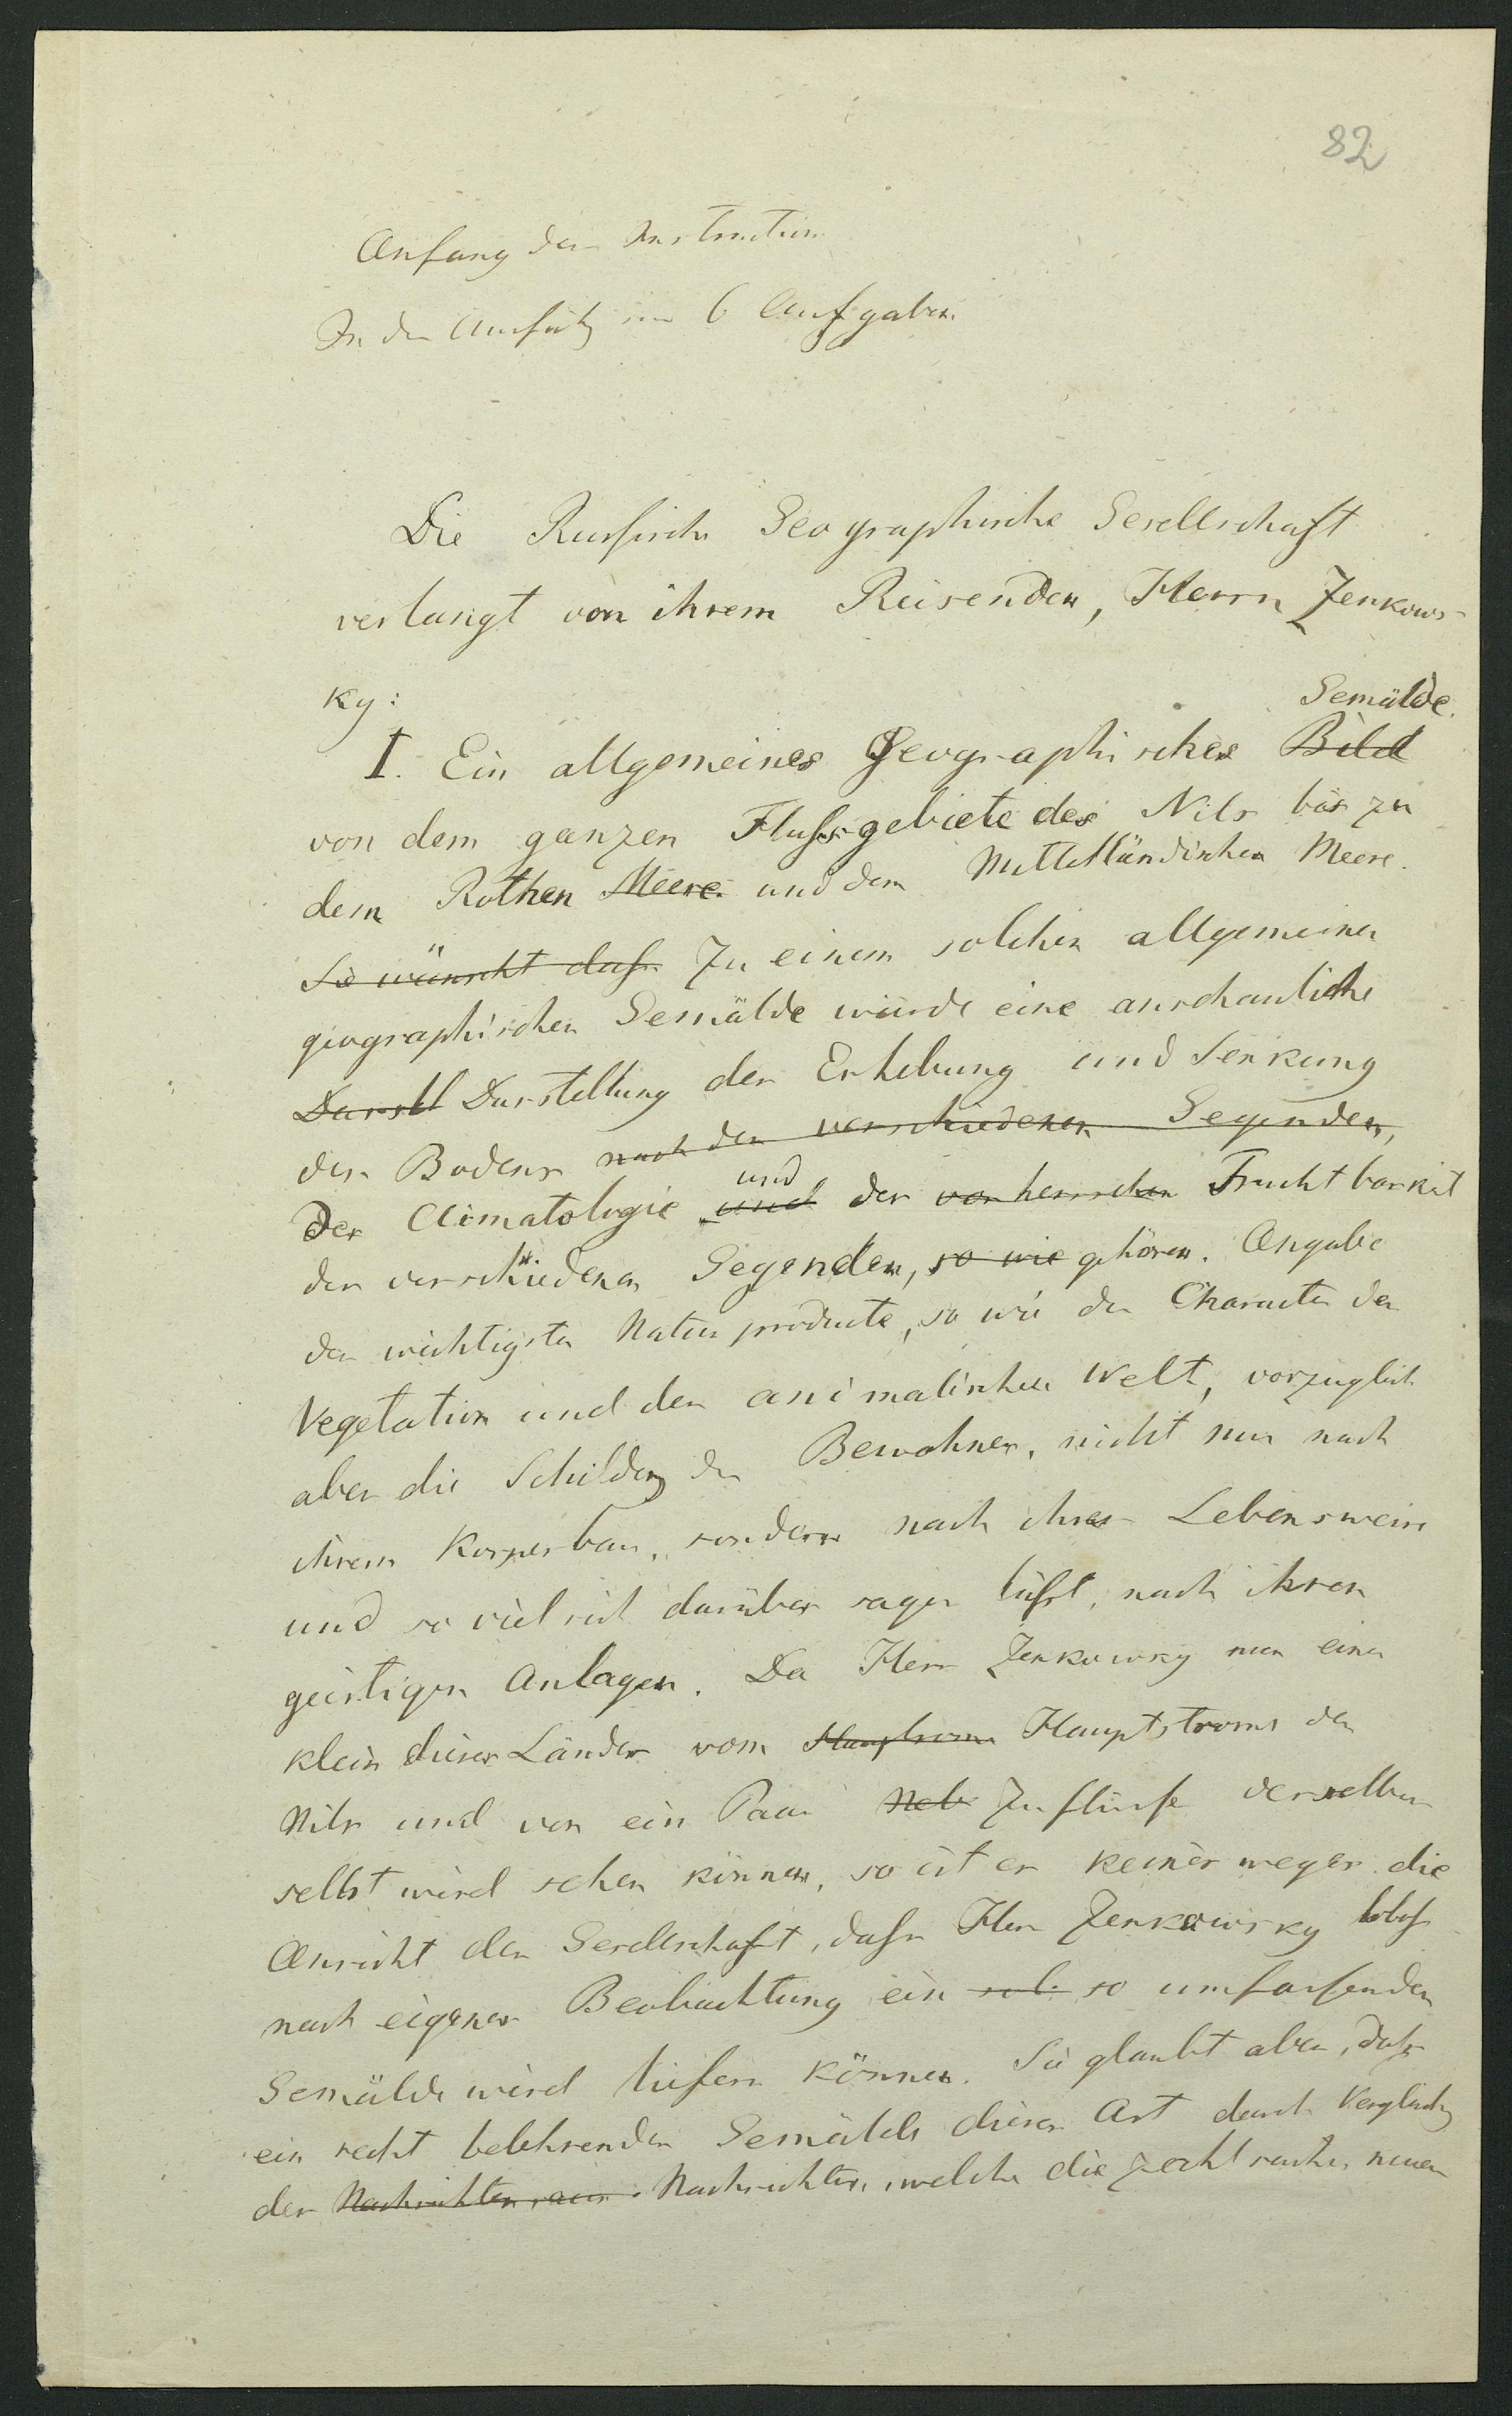 82
Anfang der Instruction
In der Aufsatz 6 Aufgaben.
Die Russische Geographische Gesellschaft
verlangt von ihrem Reisenden, Herrn Zenkows-
ky:
Gemälde.
I. Ein allgemeines Geographisches Bild
von dem ganzen Flussgebiete des Nils bis zu
dem Rothen Meere und dem Mittelländischen Meere.
Sie wünscht dass Zu einem solchen allgemeinen
geographischen Gemälde würde eine anschauliche
Darstel Darstellung der Erhebung und Senkung
des Bodens nach den verschiedenen Gegenden,
und
Der Climatologie und der vorherrschen Fruchtbarkeit
der verschiedenen Gegenden, so wie gehören. Angabe
der wichtigsten Naturproducte, so wie der Character der
Vegetation und der animalischen Welt, vorzüglich
aber die Schilderung der Bewohner, nicht nur nach
ihrem Körperbau, sondern nach ihrer Lebensweise
und so viel sich darüber sagen lässt, nach ihren
geistigen Anlagen. Da Herr Zenkowsky nur einen
klein dieser Länder vom Hauptstrom Hauptstroms des
Nils und von ein Paar Neb Zuflüsse desselben
selbst wird sehen können, so ist es keines weges die
Ansicht der Gesellschaft, dass Herr Zenkowsky bloss
nach eigener Beobachtung ein sol so umfassendes
Gemälde wird liefern können. Sie glaubt aber, dass
ein recht belehrendes Gemälde dieser Art durch Vergleichung
der Nachrichten, aus Nachrichten, welche die zahlreichen neuen